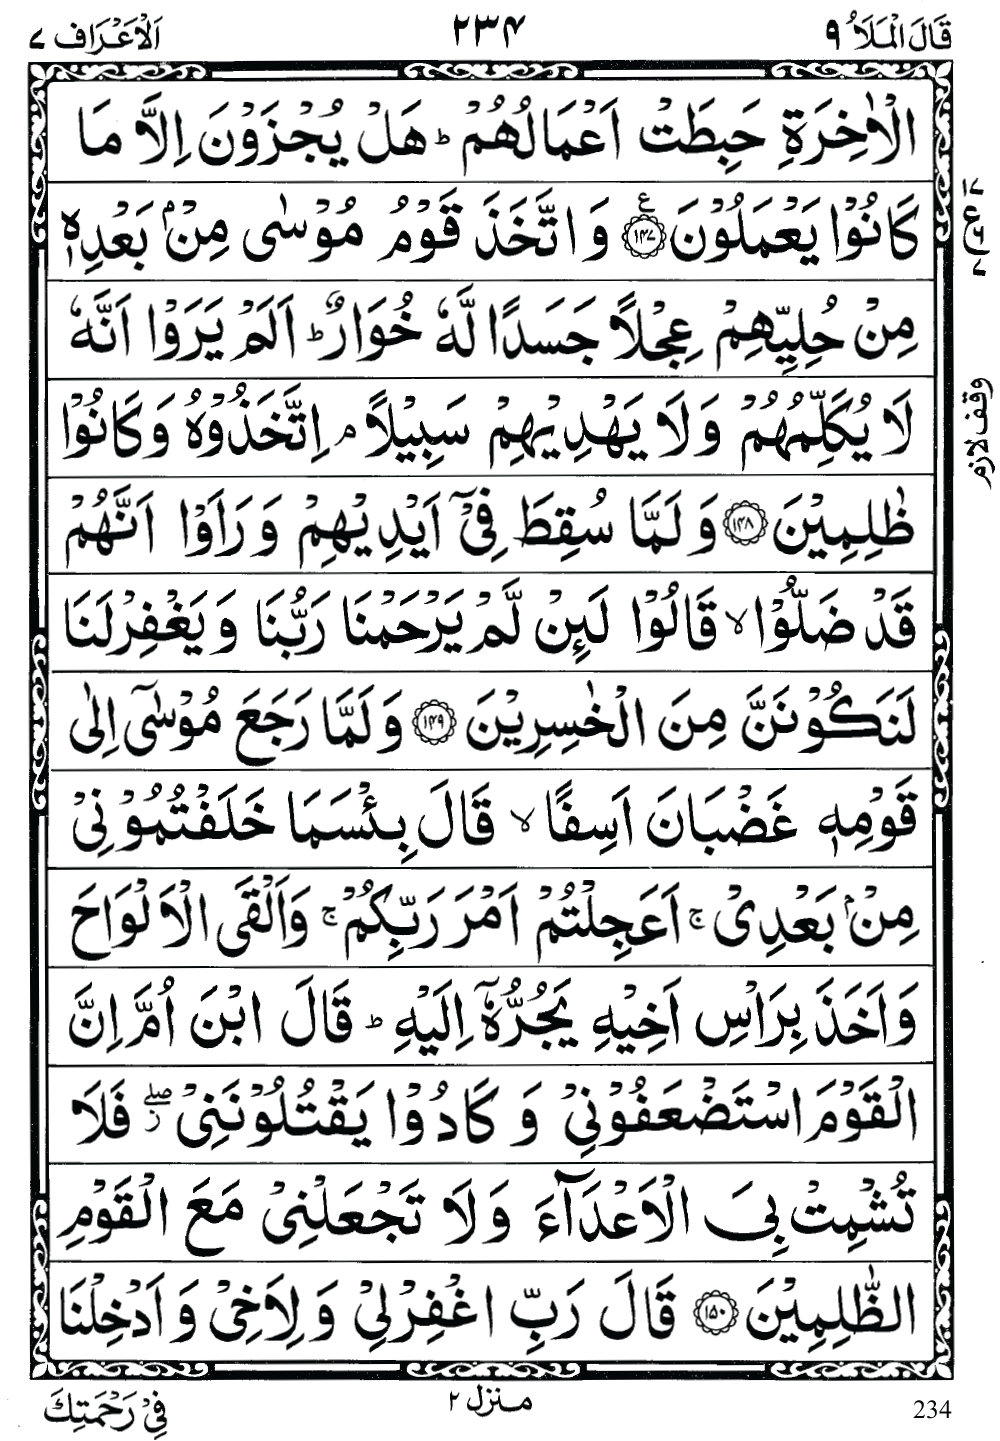 قَالَ الْمَلَاُ ٩ ٢٣۴ اَلْاَعْرَاف ٧
الْاٰخِرَةِ حَبِطَتْ اَعْمَالُهُمْ ؕ هَلْ يُجْزَوْنَ اِلَّا مَا
كَانُوْا يَعْمَلُوْنَ ﴿۱۴۷﴾ ع وَ اتَّخَذَ قَوْمُ مُوْسٰى مِنْۢ بَعْدِهٖ
مِنْ حُلِيِّهِمْ عِجْلًا جَسَدًا لَّهٗ خُوَارٌ ؕ اَلَمْ يَرَوْا اَنَّهٗ
لَا يُكَلِّمُهُمْ وَلَا يَهْدِيْهِمْ سَبِيْلًا ۘ اِتَّخَذُوْهُ وَكَانُوْا
ظٰلِمِيْنَ ﴿۱۴۸﴾ وَ لَمَّا سُقِطَ فِىْۤ اَيْدِيْهِمْ وَ رَاَوْا اَنَّهُمْ
قَدْ ضَلُّوْا ۙ قَالُوْا لَىِٕنْ لَّمْ يَرْحَمْنَا رَبُّنَا وَ يَغْفِرْ لَنَا
لَنَكُوْنَنَّ مِنَ الْخٰسِرِيْنَ ﴿۱۴۹﴾ وَ لَمَّا رَجَعَ مُوْسٰۤى اِلٰى
قَوْمِهٖ غَضْبَانَ اَسِفًا ۙ قَالَ بِئْسَمَا خَلَفْتُمُوْنِىْ
مِنْۢ بَعْدِىْ ۚ اَعَجِلْتُمْ اَمْرَ رَبِّكُمْ ۚ وَ اَلْقَى الْاَلْوَاحَ
وَ اَخَذَ بِرَاْسِ اَخِيْهِ يَجُرُّهٗۤ اِلَيْهِ ؕ قَالَ ابْنَ اُمَّ اِنَّ
الْقَوْمَ اسْتَضْعَفُوْنِىْ وَ كَادُوْا يَقْتُلُوْنَنِىْ ۖؗ فَلَا
تُشْمِتْ بِىَ الْاَعْدَآءَ وَ لَا تَجْعَلْنِىْ مَعَ الْقَوْمِ
الظّٰلِمِيْنَ ﴿۱۵۰﴾ قَالَ رَبِّ اغْفِرْ لِىْ وَ لِاَخِىْ وَ اَدْخِلْنَا
وقف لازم
منزل ٢
فِىْ رَحْمَتِكَ
234